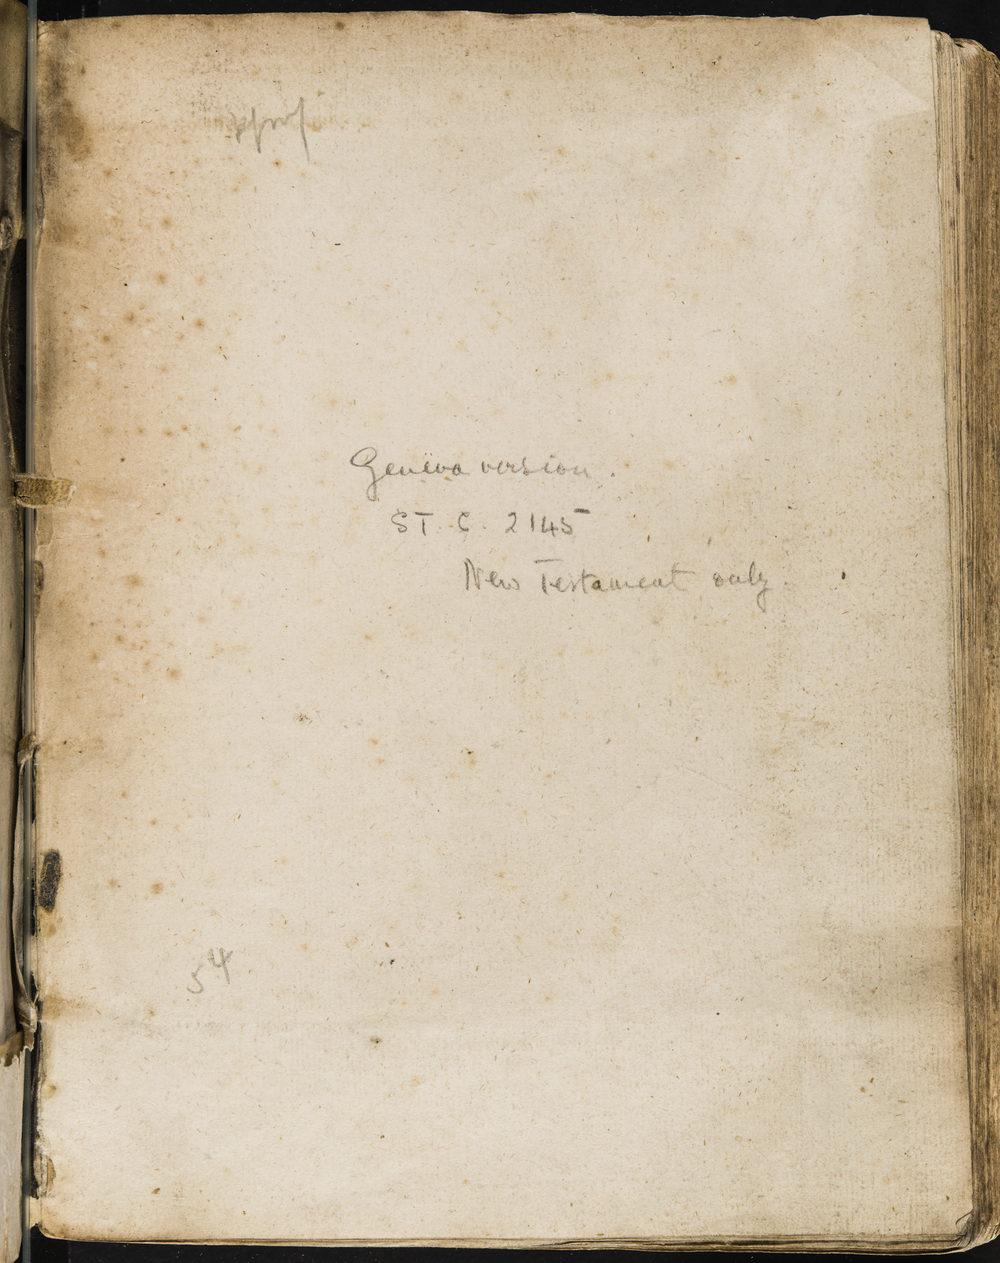 Geneva version.
S T. C. 2145
New Testament only.
54